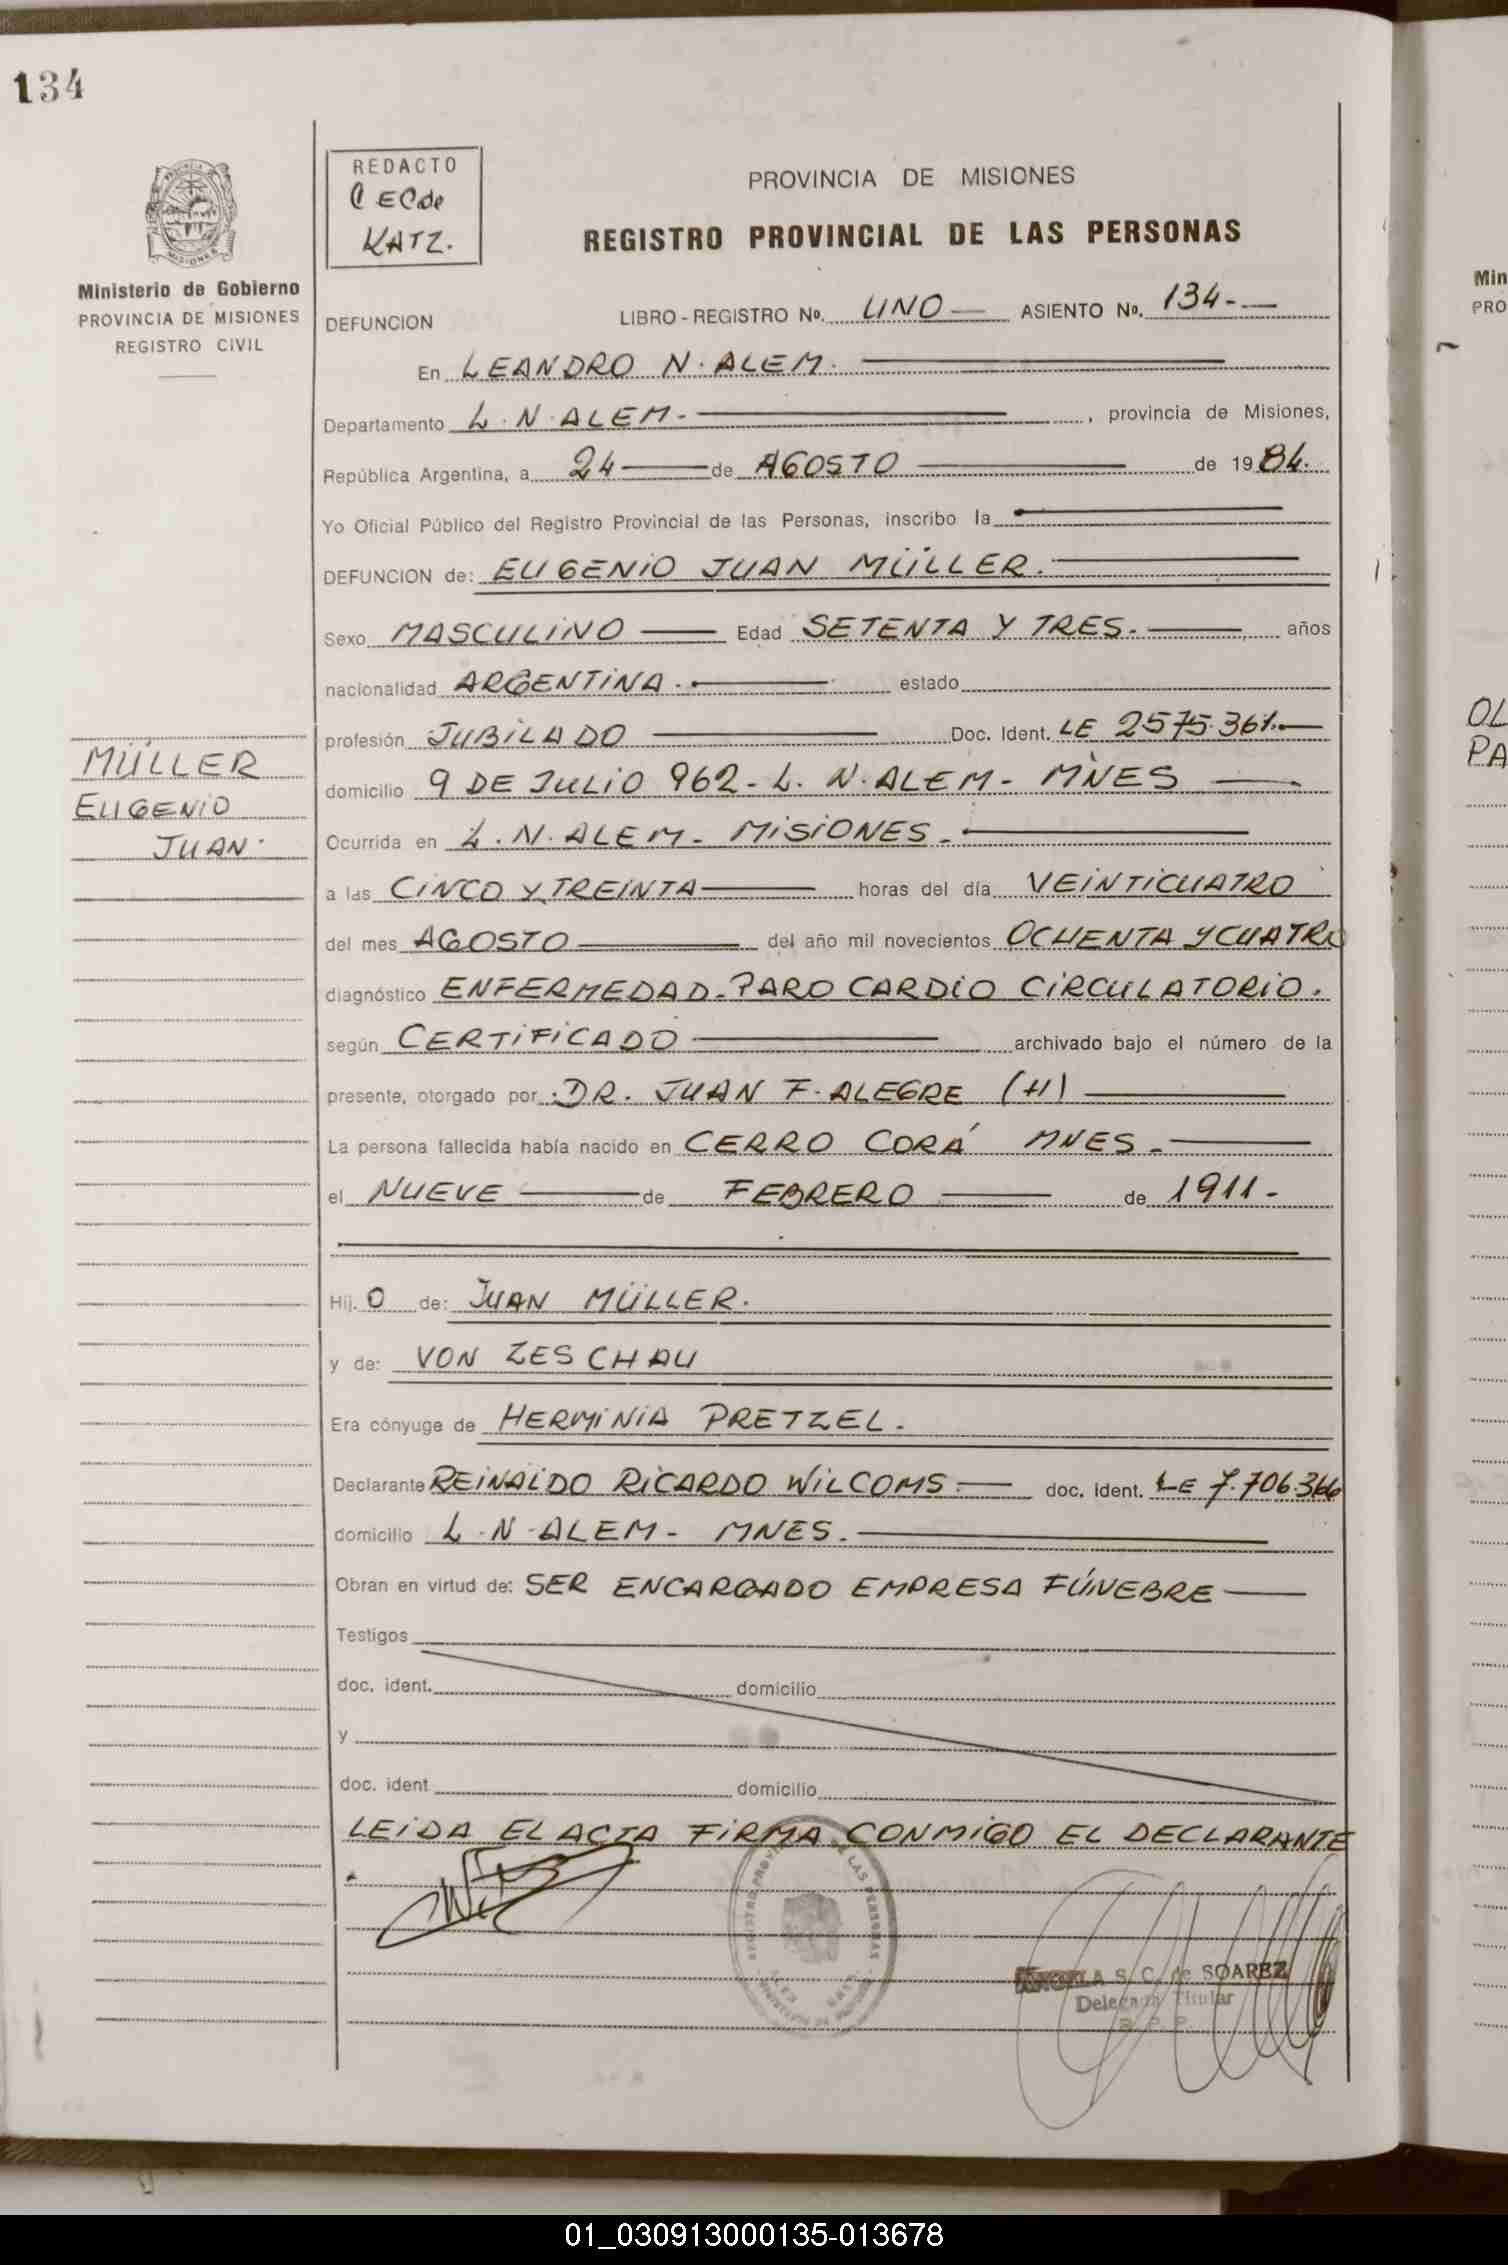 134
REDACTO
CECde
KATZ.
PROVINCIA DE MISIONES
REGISTRO PROVINCIAL DE LAS PERSONAS
Ministerio de Gobierno
PROVINCIA DE MISIONES
REGISTRO CIVIL
DEFUNCION LIBRO - REGISTRO No. UNO — ASIENTO No. 134.-—
En LEANDRO N. ALEM.
Departamento L. N. ALEM.- , provincia de Misiones,
República Argentina, a 24 — de AGOSTO — de 1984.
Yo Oficial Público del Registro Provincial de las Personas, inscribo la
DEFUNCION de: EUGENIO JUAN MÜLLER.
Sexo MASCULINO — Edad SETENTA Y TRES.- años
nacionalidad ARGENTINA.- estado
profesión JUBILADO — Doc. Ident. LE 2575.361.-
domicilio 9 DE JULIO 962- L. N. ALEM- MNES —
Ocurrida en L. N. ALEM- MISIONES.-
a las CINCO Y TREINTA — horas del día VEINTICUATRO
del mes AGOSTO — del año mil novecientos OCHENTA Y CUATRO
diagnóstico ENFERMEDAD-PARO CARDIO CIRCULATORIO.
según CERTIFICADO — archivado bajo el número de la
presente, otorgado por: DR. JUAN F. ALEGRE (H) —
La persona fallecida había nacido en CERRO CORÁ MNES.-
el NUEVE — de FEBRERO — de 1911.-
Hij. O de: JUAN MÜLLER.
y de: VON ZESCHAU
Era cónyuge de HERMINIA PRETZEL.
Declarante REINALDO RICARDO WILCOMS.— doc. Ident. LE 7.706.366
domicilio L. N. ALEM- MNES.-
Obran en virtud de: SER ENCARGADO EMPRESA FÚNEBRE —
Testigos
doc. ident. domicilio
y
doc. ident domicilio
LEIDA EL ACTA FIRMA CONMIGO EL DECLARANTE
MÜLLER
EUGENIO
JUAN.
S. C. de SOAREZ
Delegada Titular
R. P. P.
Min
PRO
OL
PA
01_030913000135-013678